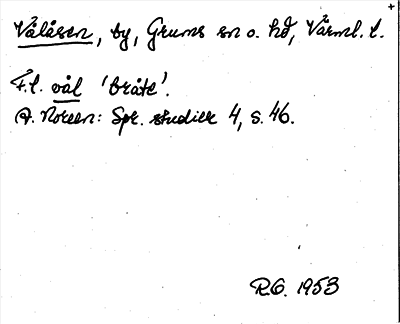 Vålåsen, by, Grums sn o. hd, Värml. l.
F.l. vål 'bråte'.
A. Noreen: Spr. studier 4, s. 46.
R.G. 1953